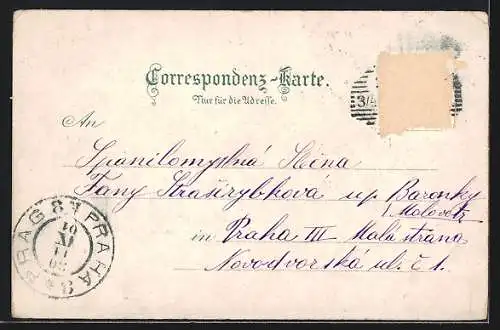 Correspondenz-Karte.
Nur für die Adresse.
An
Spanilomyslná Slečna
Fany Straširybková up. Baronky
Malovetz
in Praha III Malá strana
Novodvorská ul. č 1.
PRAG PRAHA